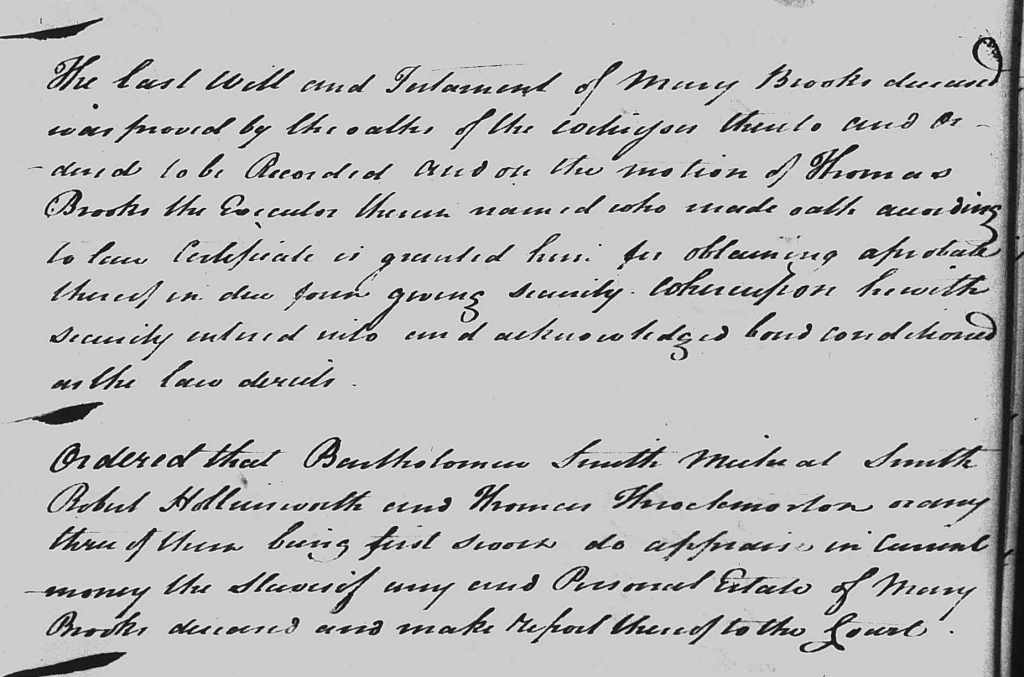 The last Will and Testament of Mary Brooks deceased
was proved by the oaths of the thereto and Or-
-dered to be Recorded and on the motion of Thomas
Brooks the Executor therein named who made oath according
to law Certificate is granted him for obtaining a probate
thereof in due form giving security. Whereupon he with
security entered into and acknowledged bond conditioned
as the law directs.
Ordered that Bartholomew Smith Micheal Smith
Robert Hollinsworth and Thomas Throckmorton or any
three of them being first sworn do appraise in Current
-money the Slaves if any and Personal Estate of Mary
Brooks deceased and make report thereof to the Court.